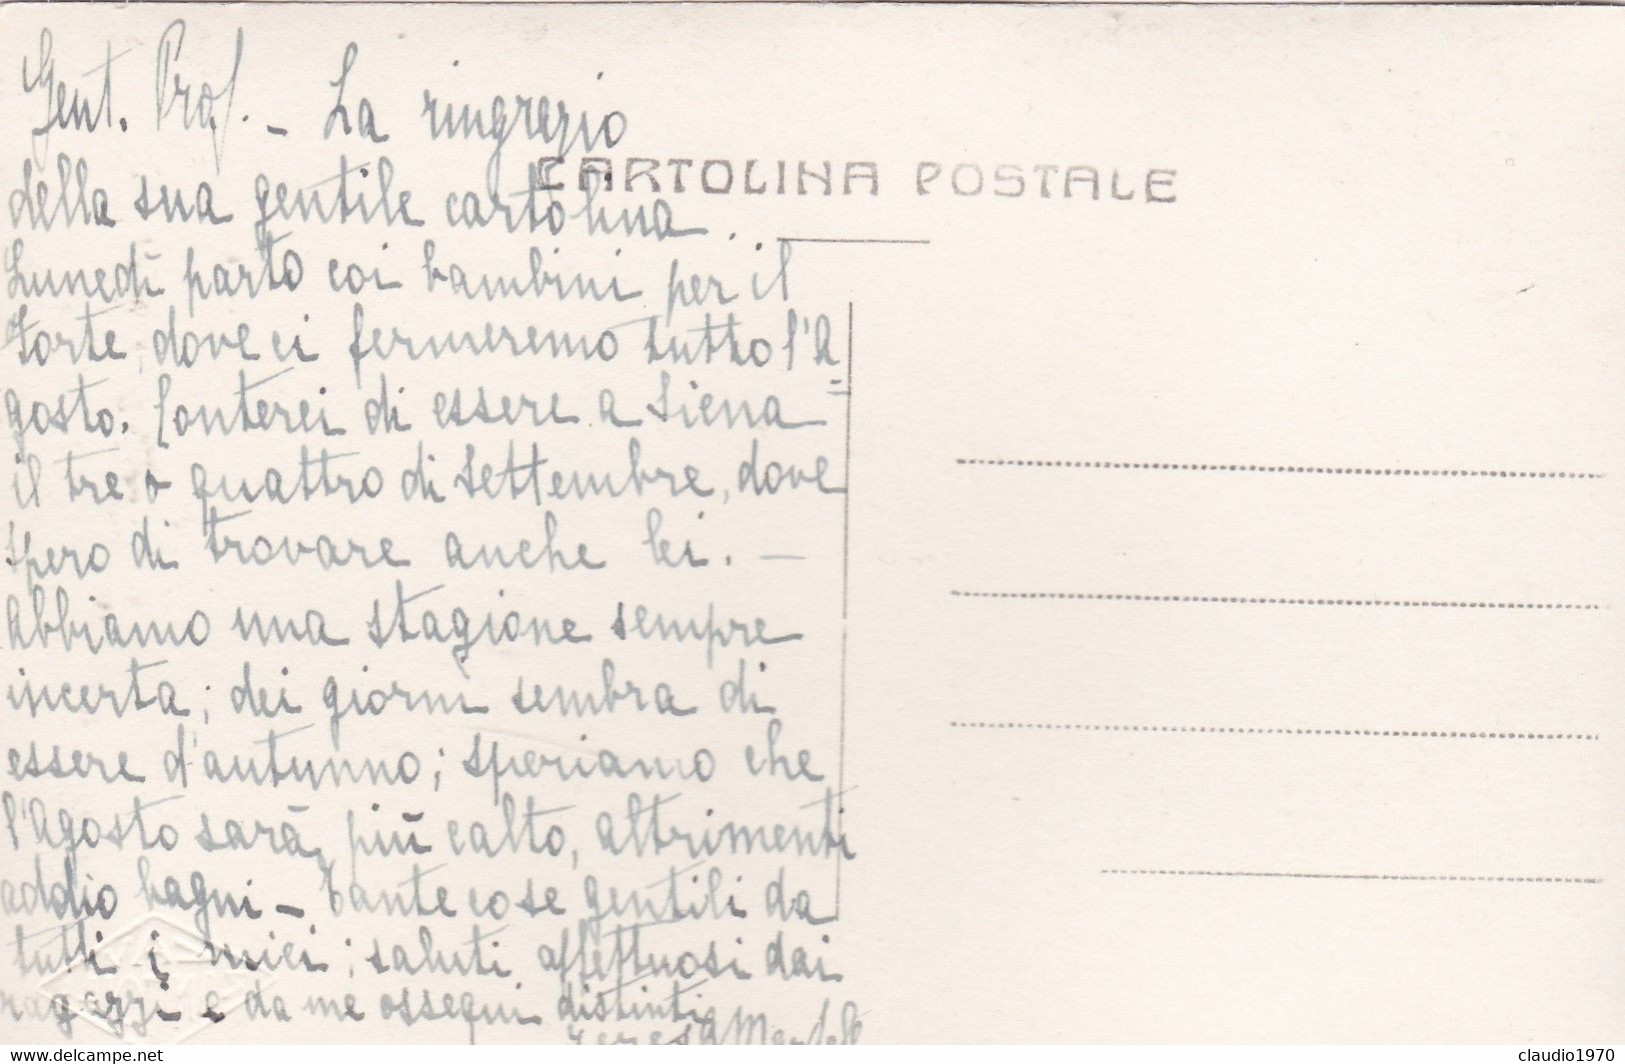 Gent. Prof. - La ringrazio
CARTOLINA POSTALE
della sua gentile cartolina.
Lunedì parto coi bambini per il
Forte, dove ci fermeremo tutto l'A
gosto. Conterei di essere a Siena
il tre o quattro di Settembre, dove
spero di trovare anche lei. —
Abbiamo una stagione sempre
incerta; dei giorni sembra di
essere d'autunno; speriamo che
l'Agosto sarà più calto, altrimenti
addio bagni - Tante cose gentili da
tutti i miei; saluti affettuosi dai
ragazzi e da me ossequi distinti
Teresa
delcampe.net
claudio1970